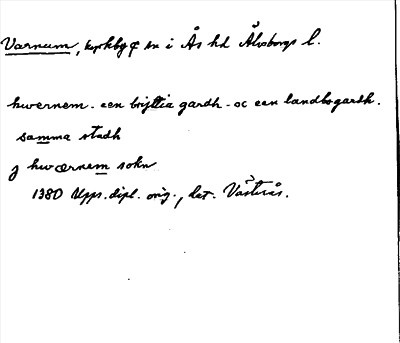 Varnum, kyrkby o sn i Ås hd Älvsborgs l.
hwernem. een bryttia gardh. oc een landbogardh.
samma stadh
j hwærnem sokn
1380 Upps. dipl. orig., dat. Västerås.